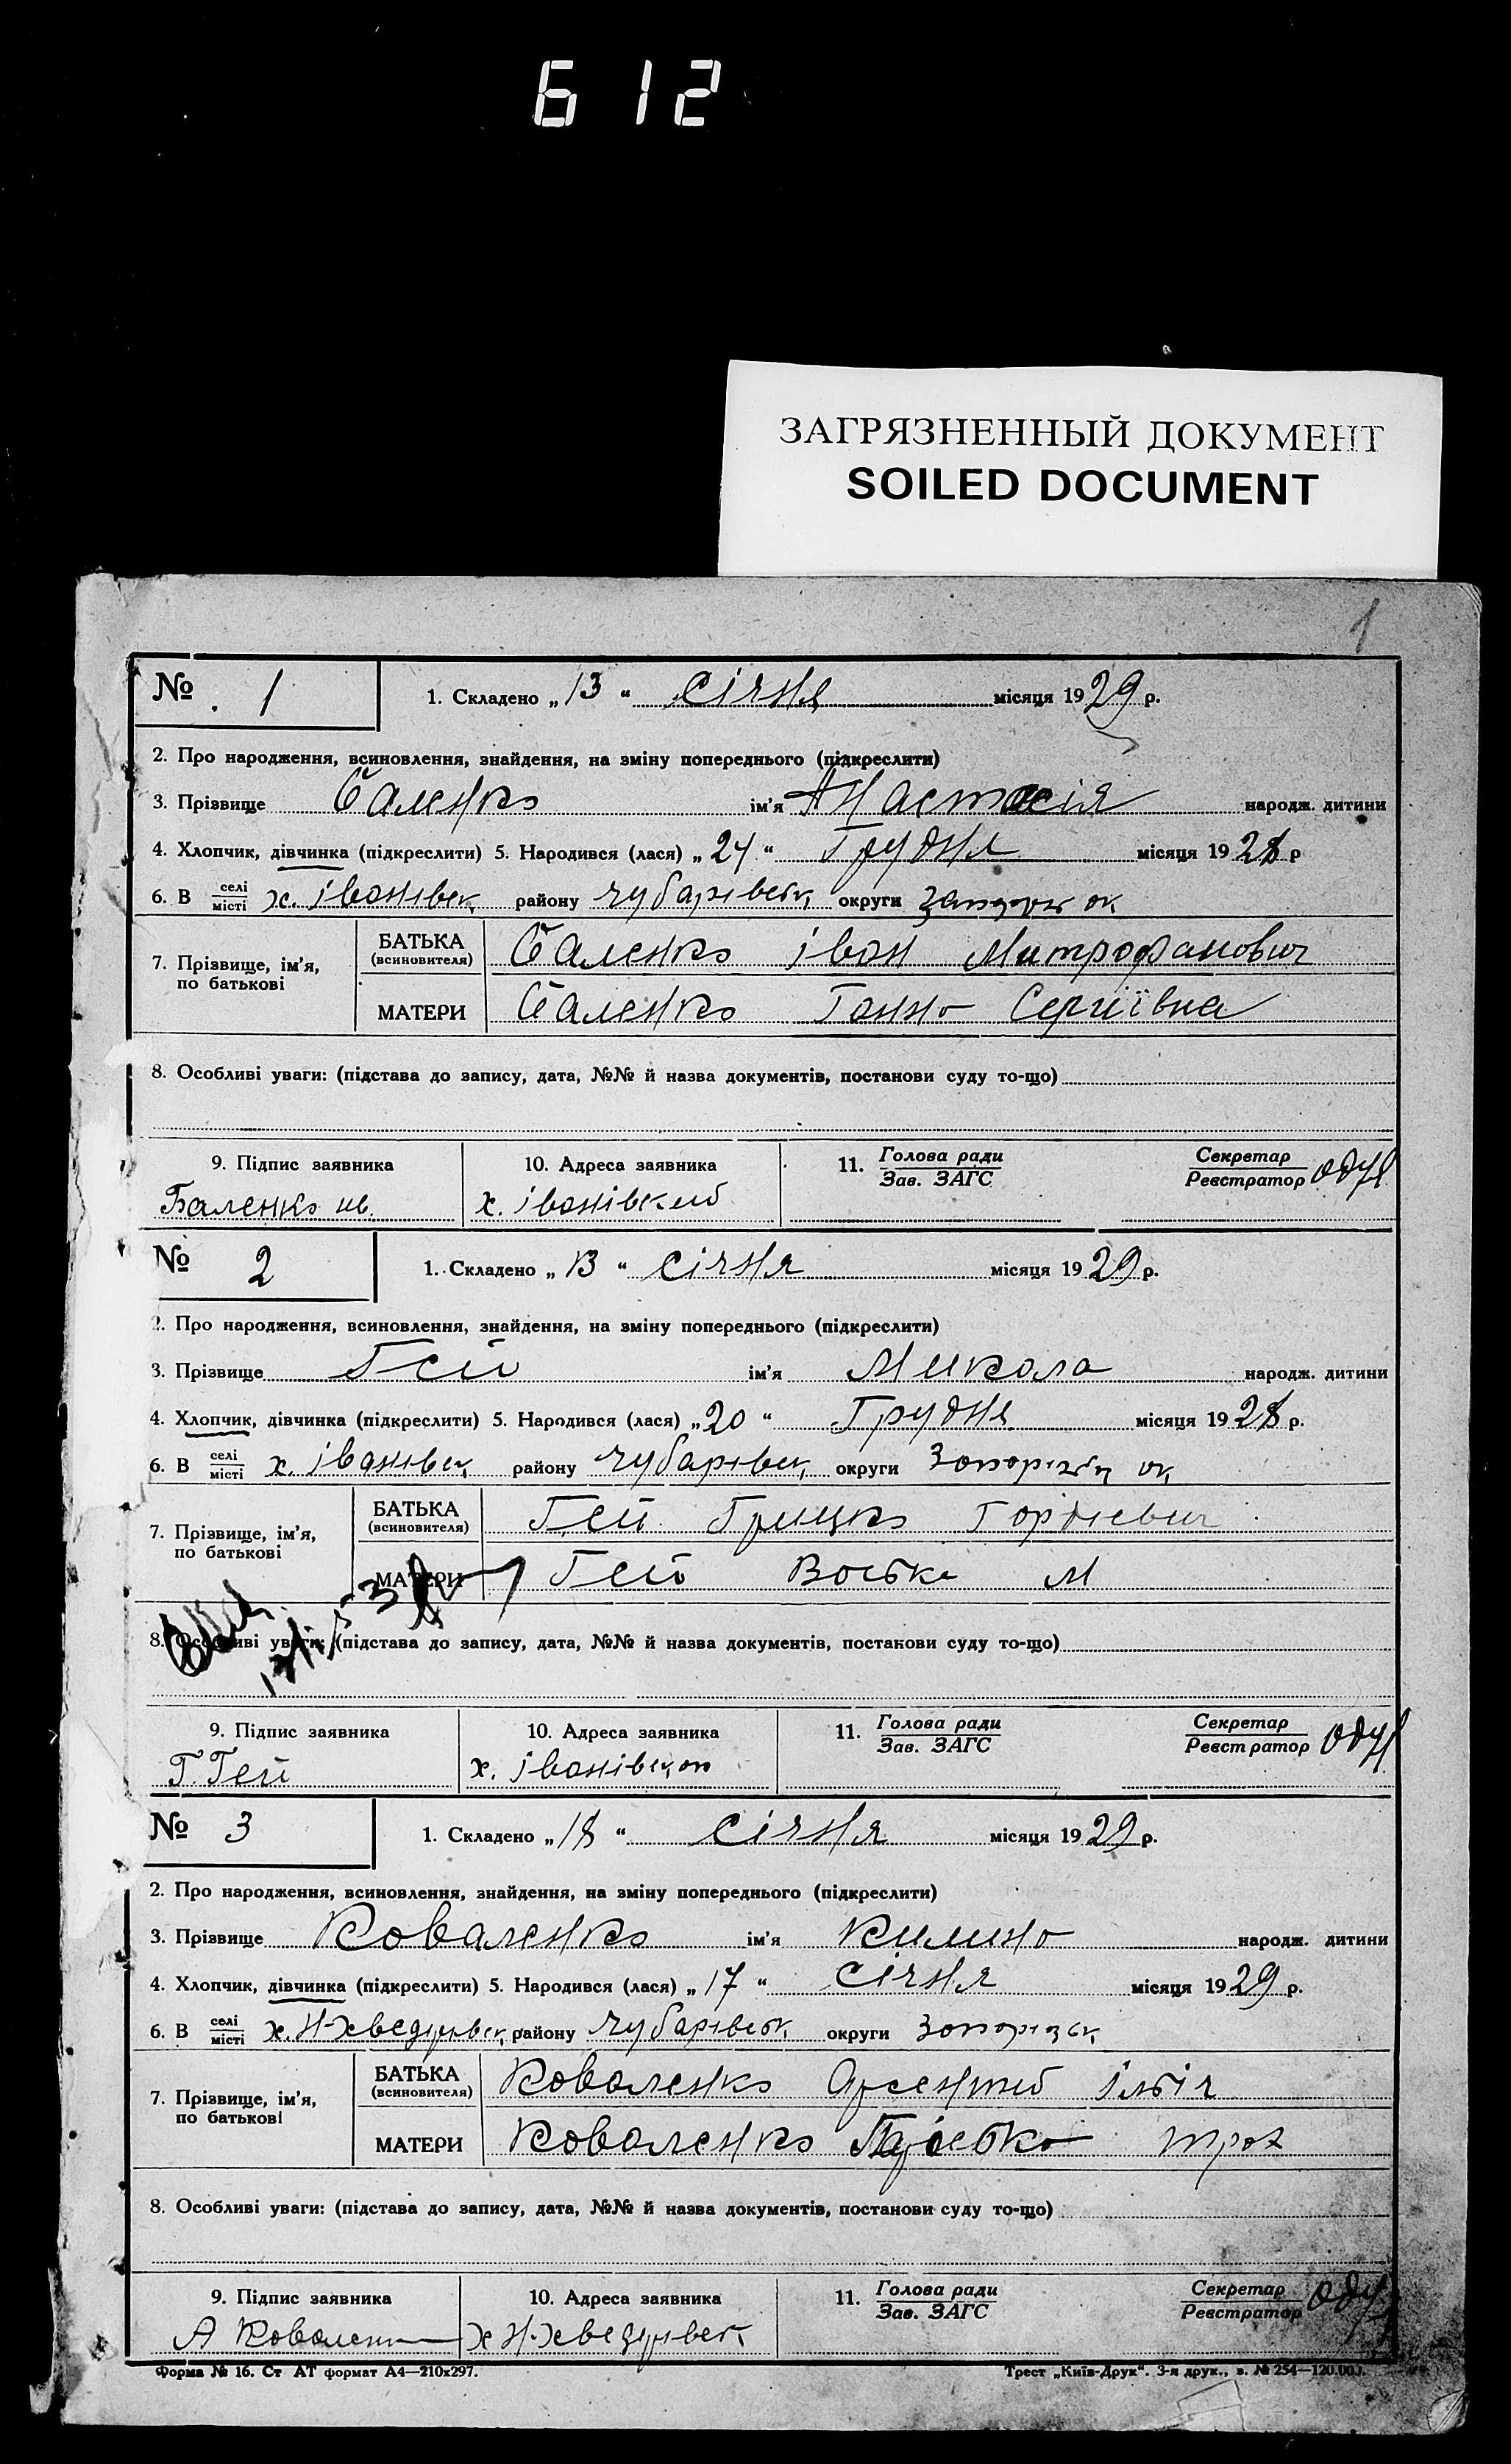 612
ЗАГРЯЗНЕННЫЙ ДОКУМЕНТ
SOILED DOCUMENT
1
№ 1 1. Складено „13“ січня місяця 1929 р.
2. Про народження, всиновлення, знайдення, на зміну попереднього (підкреслити)
3. Прізвище Баленко ім'я Анастасія народж. дитини
4. Хлопчик, дівчинка (підкреслити) 5. Народився (лася) „24“ Грудня місяця 1928 р
6. В селі/місті х. Іванівськ району Чубарівськ округи ок
7. Прізвище, ім'я, по батькові
БАТЬКА (всиновителя) Баленко Іван Митрофанович
МАТЕРИ Баленко Ганна Сергіївна
8. Особливі уваги: (підстава до запису, дата, №№ й назва документів, постанови суду то-що)
9. Підпис заявника 10. Адреса заявника 11. Голова ради/Зав. ЗАГС Секретар/Реєстратор
Баленко ив. х. Іванівский
№ 2 1. Складено „13“ січня місяця 1929 р.
2. Про народження, всиновлення, знайдення, на зміну попереднього (підкреслити)
3. Прізвище Гей ім'я Микола народж. дитини
4. Хлопчик, дівчинка (підкреслити) 5. Народився (лася) „20“ Грудня місяця 1928 р.
6. В селі/місті х. Іванівськ району Чубарівськ округи ок
7. Прізвище, ім'я, по батькові
БАТЬКА (всиновителя) Гей Грицко Гордієвич
МАТЕРИ Гей М
8. Особливі уваги: (підстава до запису, дата, №№ й назва документів, постанови суду то-що)
9. Підпис заявника 10. Адреса заявника 11. Голова ради/Зав. ЗАГС Секретар/Реєстратор
Г. Гей х.
№ 3 1. Складено „18“ січня місяця 1929 р.
2. Про народження, всиновлення, знайдення, на зміну попереднього (підкреслити)
3. Прізвище Коваленко ім'я Килина народж. дитини
4. Хлопчик, дівчинка (підкреслити) 5. Народився (лася) „17“ січня місяця 1929 р.
6. В селі/місті х. району Чубарівськ округи Запорізьк
7. Прізвище, ім'я, по батькові
БАТЬКА (всиновителя) Коваленко Арсентий Ілліч
МАТЕРИ Коваленко
8. Особливі уваги: (підстава до запису, дата, №№ й назва документів, постанови суду то-що)
9. Підпис заявника 10. Адреса заявника 11. Голова ради/Зав. ЗАГС Секретар/Реєстратор
А Коваленко х
Форма № 16. Ст АТ формат А4—210x297. Трест „Київ-Друк“. 3-я друк., в. № 254—120.000.